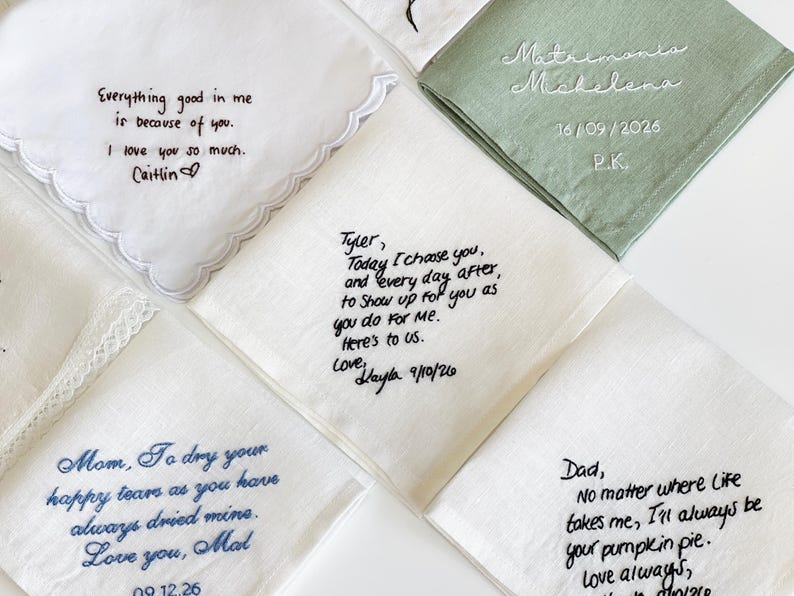 Everything good in me
is because of you.
I love you so much.
Caitlin
Matrimonio
Michelena
16/09/2026
P.K.
Tyler,
Today I choose you,
and every day after,
to show up for you as
you do for me.
Here's to us.
Love,
Kayla 9/10/26
Mom, To dry your
happy tears as you have
always dried mine.
Love you, Mal
09.12.26
Dad,
No matter where life
takes me, I'll always be
your pumpkin pie.
Love always,
9/10/26